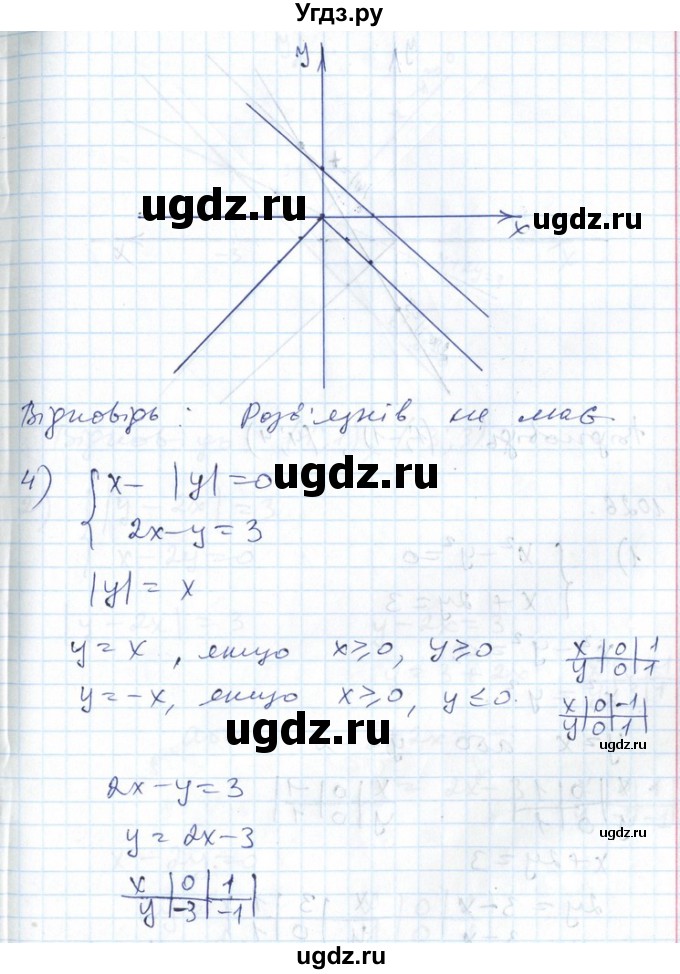 Угдз.ру
y
x
ugdz.ru
ugdz.ru
Відповідь: Розв'язків не має.
4) { x - |y| = 0
2x - y = 3
ugdz.ru
|y| = x
y = x, якщо x ≥ 0, y ≥ 0
x | 0 | 1
y | 0 | 1
y = -x, якщо x ≥ 0, y ≤ 0.
x | 0 | -1
y | 0 | 1
ugdz.ru
ugdz.ru
2x - y = 3
y = 2x - 3
ugdz.ru
x | 0 | 1
y | -3 | -1
ugdz.ru
ugdz.ru